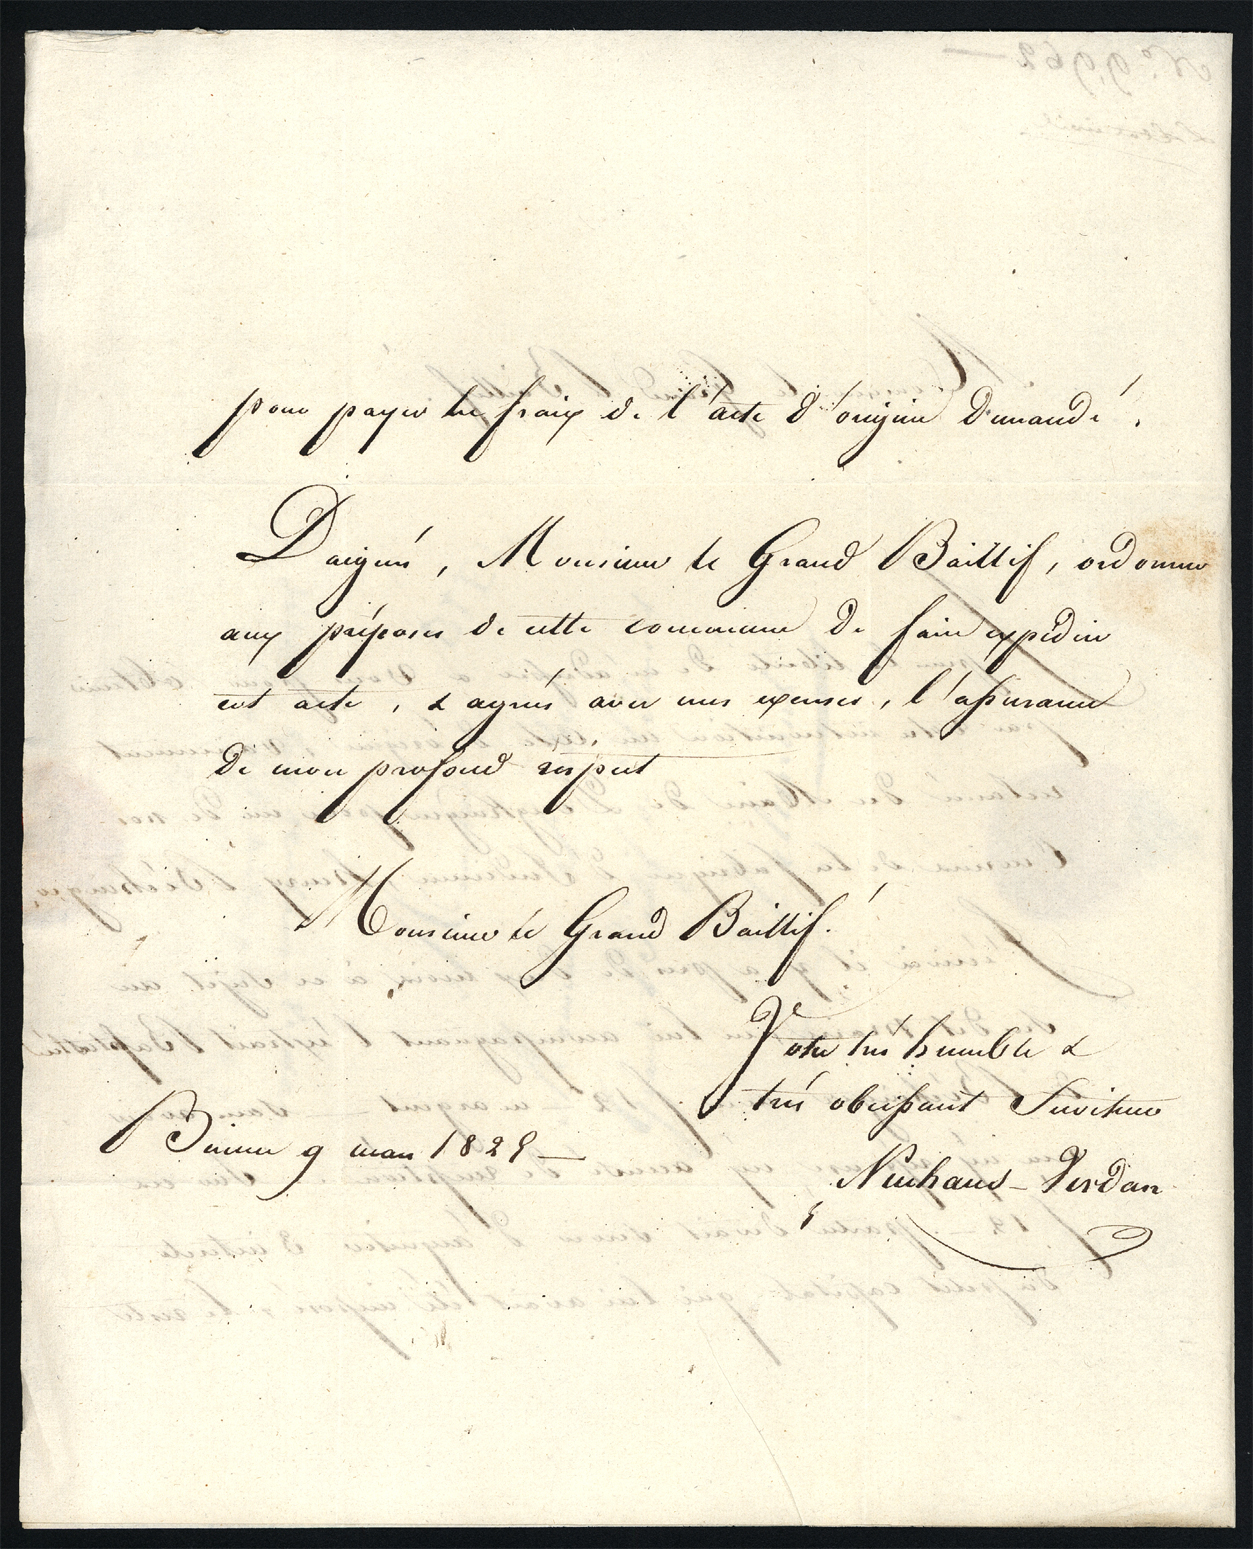 pour payer les fraix de l'acte d'origine demandé.
Daignés, Monsieur le Grand Baillif, ordonner
aux préposés de cette commune de faire expédier
cet acte, & agréés avec mes excuses, l'assurance
de mon profond respect
Monsieur le Grand Baillif!
Votre très humble &
très obeissant Serviteur
Bienne 9 mars 1825 —
Neuhaus-Verdan